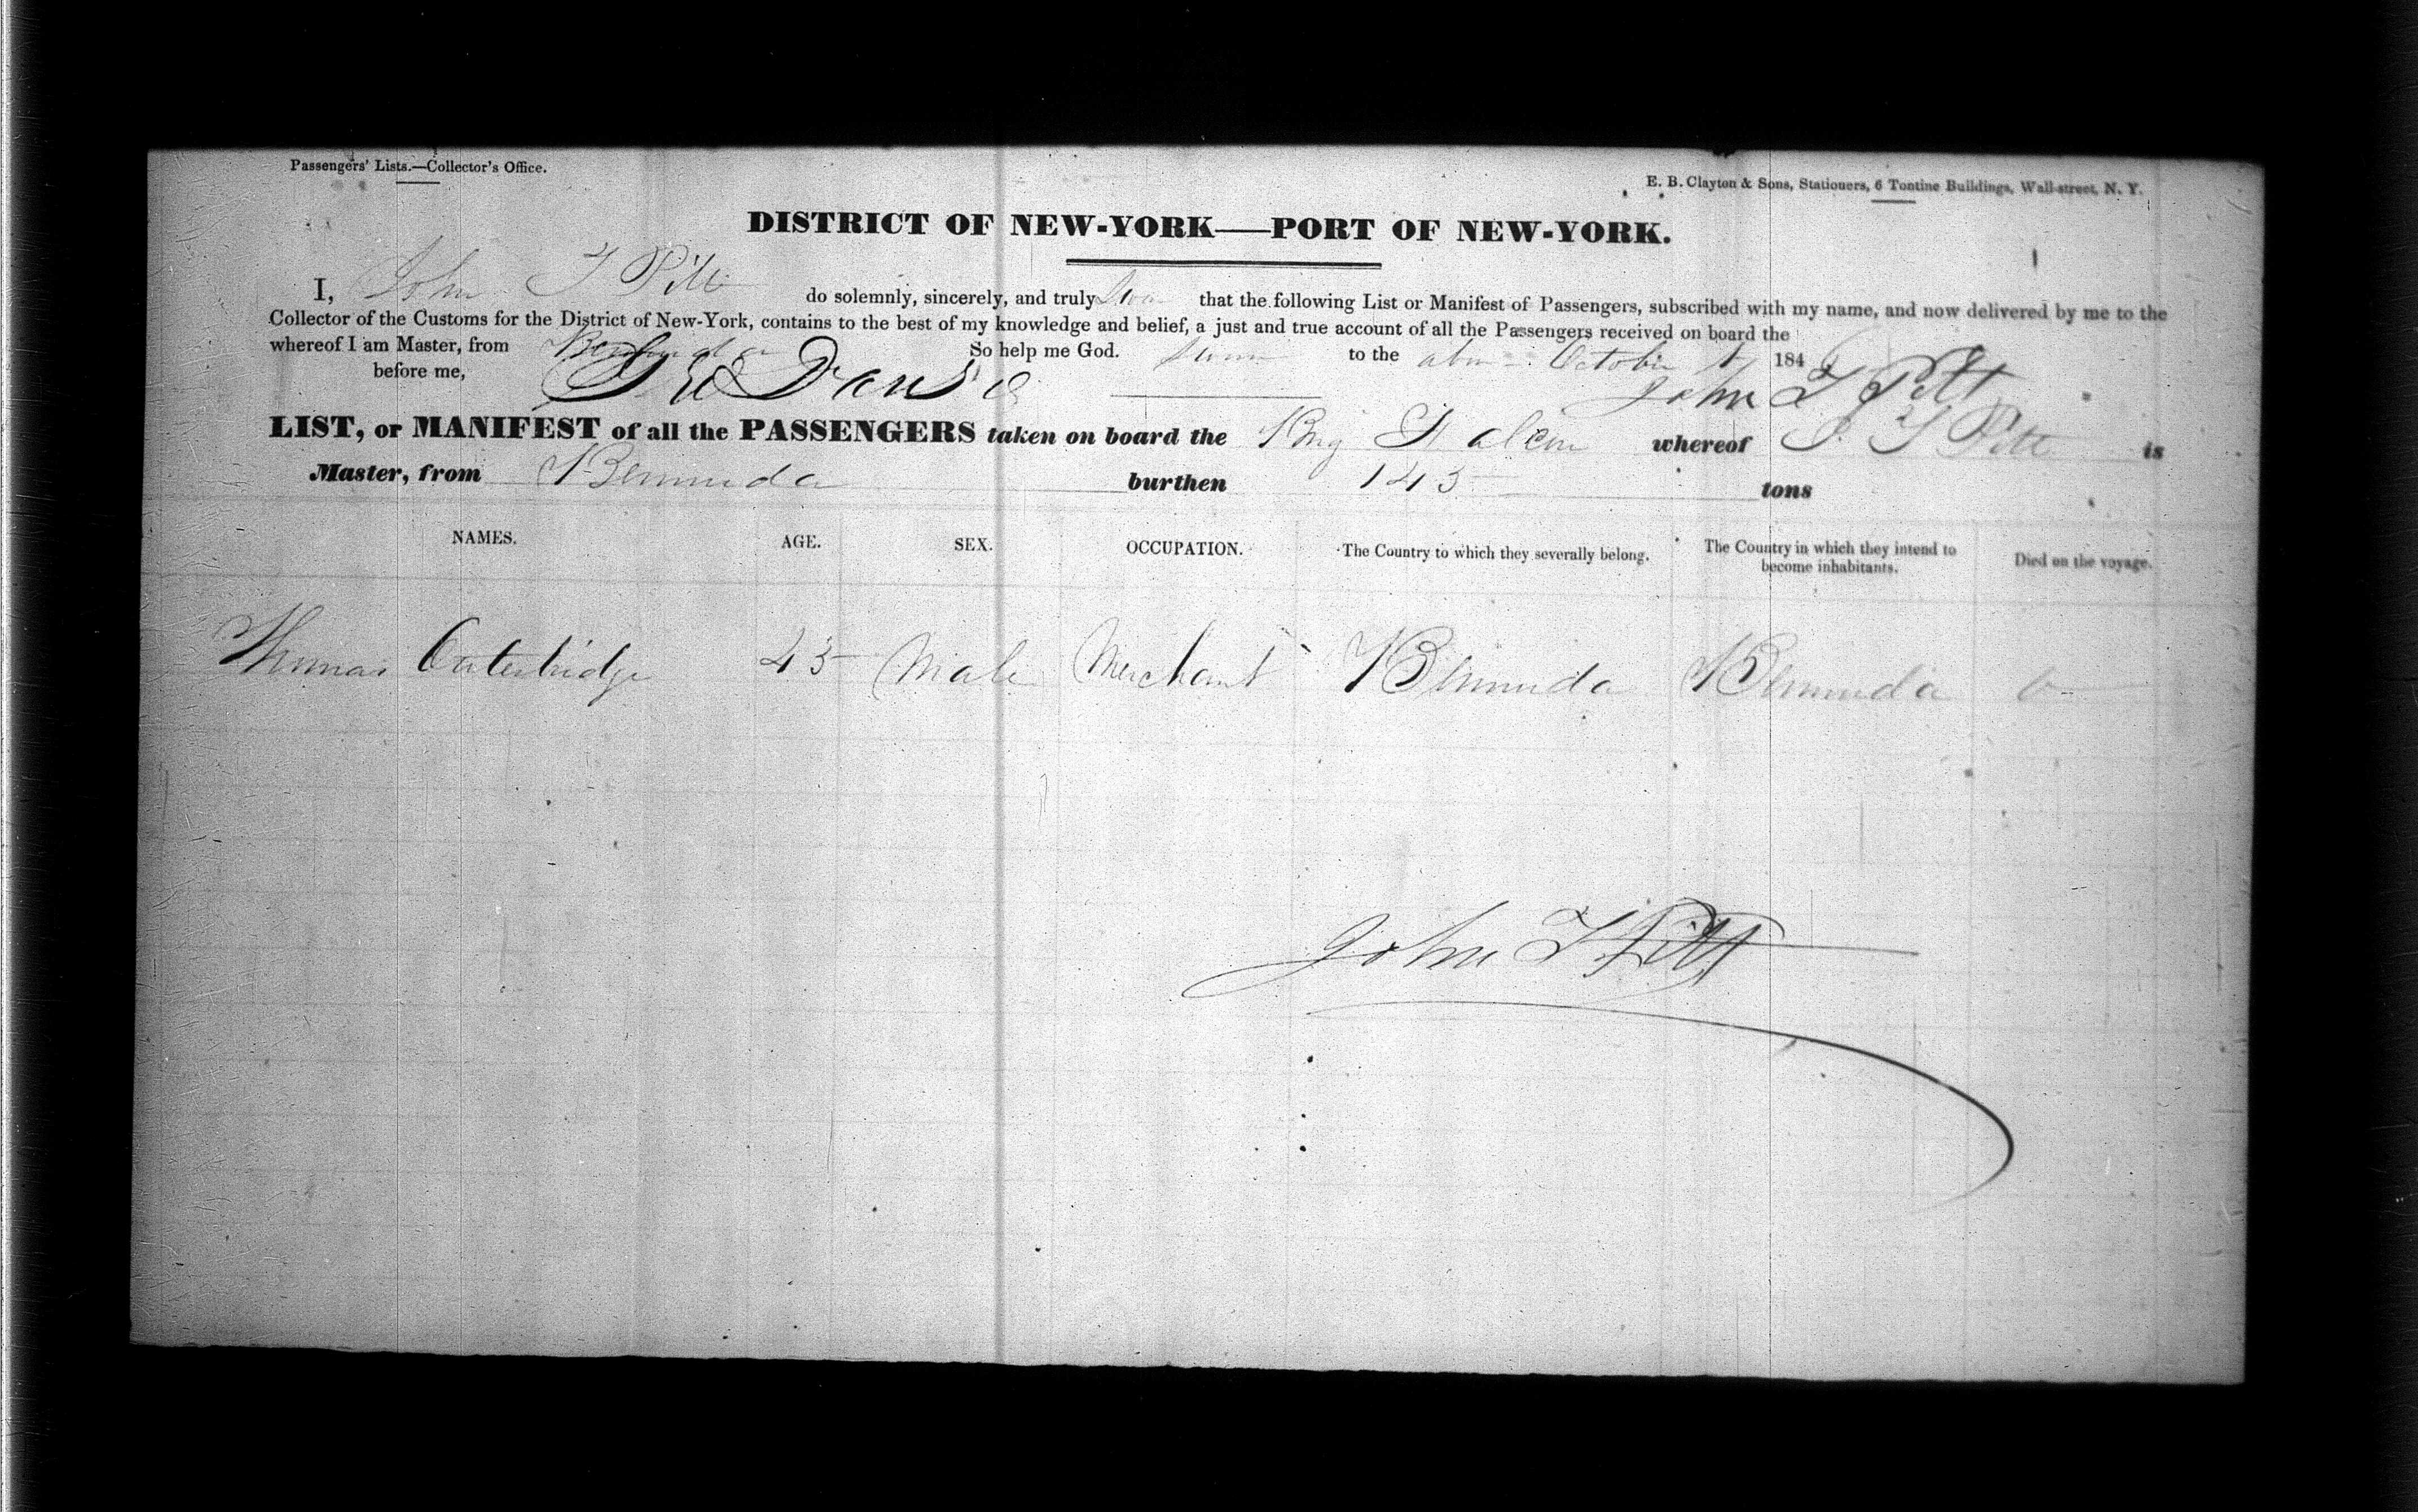 Passengers' Lists.—Collector's Office.
E. B. Clayton & Sons, Stationers, 6 Tontine Buildings, Wall-street, N. Y.
DISTRICT OF NEW-YORK—PORT OF NEW-YORK.
I, John T Pitt do solemnly, sincerely, and truly Swear that the following List or Manifest of Passengers, subscribed with my name, and now delivered by me to the
Collector of the Customs for the District of New-York, contains to the best of my knowledge and belief, a just and true account of all the Passengers received on board the
whereof I am Master, from Bermuda So help me God. Sworn to the October 184
before me, John T Pitt
LIST, or MANIFEST of all the PASSENGERS taken on board the Brig Falcon whereof J. T Pitt is
Master, from Bermuda burthen 143 tons
NAMES. AGE. SEX. OCCUPATION. The Country to which they severally belong. The Country in which they intend to become inhabitants. Died on the voyage.
Thomas Outerbridge 45 Male Merchant Bermuda Bermuda
John T Pitt